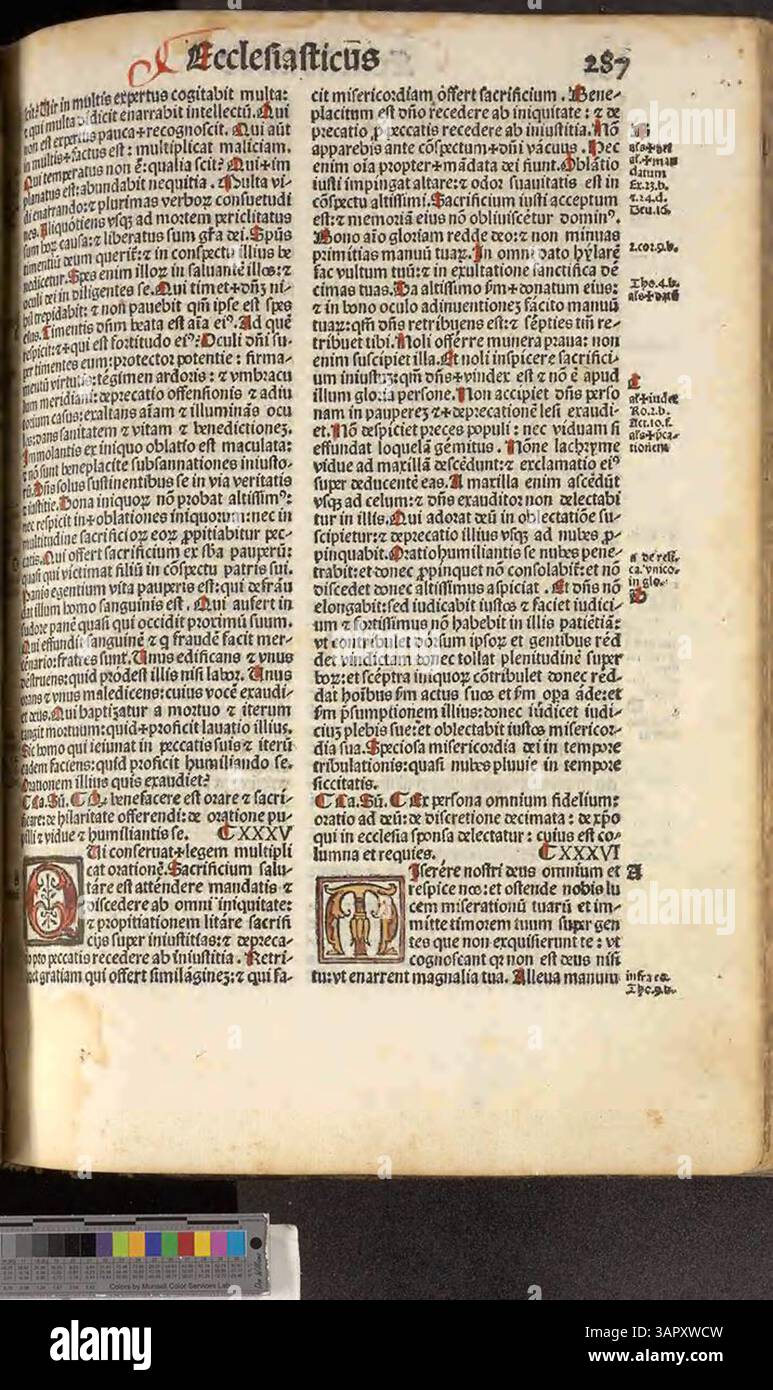 Ecclesiasticūs 287
Vir in multis expertus cogitabit multa:
⁊ qui multa didicit enarrabit intellectū. Qui
non est expertus pauca+recognoscit. Qui aūt
in multis+factus est: multiplicat maliciam.
Qui temperatus non ē: qualia scit? Qui+im
planatus est: abundabit nequitia. Multa vi-
di enarrando: ⁊ plurimas verboꝝ consuetudi
nes. Aliquotiens vsqꝫ ad mortem periclitatus
sum hoꝝ causa: ⁊ liberatus sum gr̄a dei. Sp̄us
timentiū deum querit̄: ⁊ in conspectu illius be
nedicetur. Spes enim illoꝝ in saluantē illos: ⁊
oculi dei in diligentes se. Qui timet+dn̄ꝫ ni-
hil trepidabit: ⁊ non pauebit qm̄ ipse est spes
eius. Timentis dn̄m beata est aīa eiꝰ. Ad quē
respicit: ⁊+qui est fortitudo eiꝰ? Oculi dn̄i su-
per timentes eum: protector potentie: firma-
mentū virtutis: tegimen ardoris: ⁊ vmbracu
lum meridiani: deprecatio offensionis ⁊ adiu
torium casus: exaltans aīam ⁊ illuminās ocu
los: dans sanitatem ⁊ vitam ⁊ benedictioneꝫ.
Immolantis ex iniquo oblatio est maculata:
⁊ nō sunt beneplacite subsannationes iniusto-
rū. Dn̄s solus sustinentibus se in via veritatis
⁊ iustitie. Dona iniquoꝝ nō probat altissimꝰ:
nec respicit in+oblationes iniquorum: nec in
multitudine sacrificioꝝ eoꝝ ꝓpitiabitur pec-
catis. Qui offert sacrificium ex sb̄a pauperū:
quasi qui victimat filiū in cōspectu patris sui.
Panis egentium vita pauperis est: qui defrau
dat illum homo sanguinis est. Qui aufert in
sudore panē quasi qui occidit proximū suum.
Qui effundit sanguinē ⁊ q̄ fraudē facit mer-
cēnario: fratres sunt. Unus edificans ⁊ vnus
destruens: quid prōdest illis nisi labor. Unus
orans ⁊ vnus maledicens: cuius vocē exaudi-
et deus. Qui baptizatur a mortuo ⁊ iterum
tangit mortuum: quid+proficit lauatio illius.
Sic homo qui ieiunat in peccatis suis ⁊ iterū
eadem faciens: quid proficit humiliando se.
Orationem illius quis exaudiet?
¶ Ca. Sū. ¶ Q benefacere est orare ⁊ sacri-
ficare: de hilaritate offerendi: de oratione pu-
pilli ⁊ vidue ⁊ humiliantis se. ¶ XXXV
Qui conseruat+legem multipli
cat orationē. Sacrificium salu-
tare est attēndere mandatis ⁊
discedere ab omni iniquitate:
⁊ propitiationem litāre sacrifi
cijs super iniustitias: ⁊ depreca-
tio pro peccatis recedere ab iniustitia. Retri-
buet gratiam qui offert similagineꝫ: ⁊ qui fa-
cit misericordiam offert sacrificium. Bene-
placitum est dn̄o recedere ab iniquitate: ⁊ de
precatio ꝓ peccatis recedere ab iniustitia. Nō
apparebis ante cōspectum+dn̄i vacuus. Hec
enim oīa propter+mādata dei fiunt. Oblatio
iusti impingat altare: ⁊ odor suauitatis est in
cōspectu altissimi. Sacrificium iusti acceptum
est: ⁊ memoriā eius nō obliuiscētur dominꝰ.
Bono aīo gloriam redde deo: ⁊ non minuas
primitias manuū tuaꝝ. In omni dato hylarē
fac vultum tuū: ⁊ in exultatione sanctifica de
cimas tuas. Da altissimo ẜm+donatum eius:
⁊ in bono oculo adinuentioneꝫ fācito manuū
tuaꝝ: qm̄ dn̄s retribuens est: ⁊ sēpties tm̄ re-
tribuet tibi. Noli offērre munera praua: non
enim suscipiet illa. Et noli inspicere sacrifici-
um iniustuꝫ: qm̄ dn̄s+vindex est ⁊ nō ē apud
illum gloria persone. Non accipiet dn̄s perso
nam in paupereꝫ ⁊+deprecationē lesi exaudi-
et. Nō despiciet preces populi: nec viduam si
effundat loquelā gēmitus. Nōne lachryme
vidue ad maxillā descēdunt: ⁊ exclamatio eiꝰ
super deducentē eas. A maxilla enim ascēdūt
vsqꝫ ad celum: ⁊ dn̄s exauditor non delectabi
tur in illis. Qui adorat deū in oblectatiōe su-
scipietur: ⁊ deprecatio illius vsqꝫ ad nubes ꝓ-
pinquabit. Oratio humiliantis se nubes pene-
trabit: et donec ꝓpinquet nō consolabit̄: et nō
discedet donec altissimus aspiciat. Et dn̄s nō
elongabit: sed iudicabit iustos ⁊ faciet iudici-
um ⁊ fortissimus nō habebit in illis patiētiā:
vt contribulet dorsum ipsoꝝ et gentibus red
det vindictam donec tollat plenitudinē super
boꝝ: et sceptra iniquoꝝ cōtribulet donec red-
dat hoībus ẜm actus suos et ẜm oꝑa ade: et
ẜm p̄sumptionem illius: donec iudicet iudi-
ciuꝫ plebis sue: et oblectabit iustos misericor-
dia sua. Speciosa misericordia dei in tempore
tribulationis: quasi nubes pluuie in tempore
siccitatis.
¶ Ca. Sū. ¶ Ex persona omnium fidelium:
oratio ad deū: de discretione decimata: de xp̄o
qui in ecclesia sponsa delectatur: cuius est co-
lumna et requies. ¶ XXXVI
Miserere nostri deus omnium et
respice nos: et ostende nobis lu
cem miserationū tuarū et im-
mitte timorem tuum super gen
tes que non exquisierunt te: vt
cognoscant qꝛ non est deus nisi
tu: vt enarrent magnalia tua. Alleua manum
als+man
datum
Ex.23.b.
⁊.24.d.
Deu.16.
2.cor.9.b.
Tho.4.b.
C
al+iudex
Ro.2.b.
Act.10.f.
als+p̄ca-
tionem
ca.vnico.
in glo.
D
A
infra eo.
alamy
Image ID: 3APXWCW
www.alamy.com
Colors by Munsell Color Services Lab